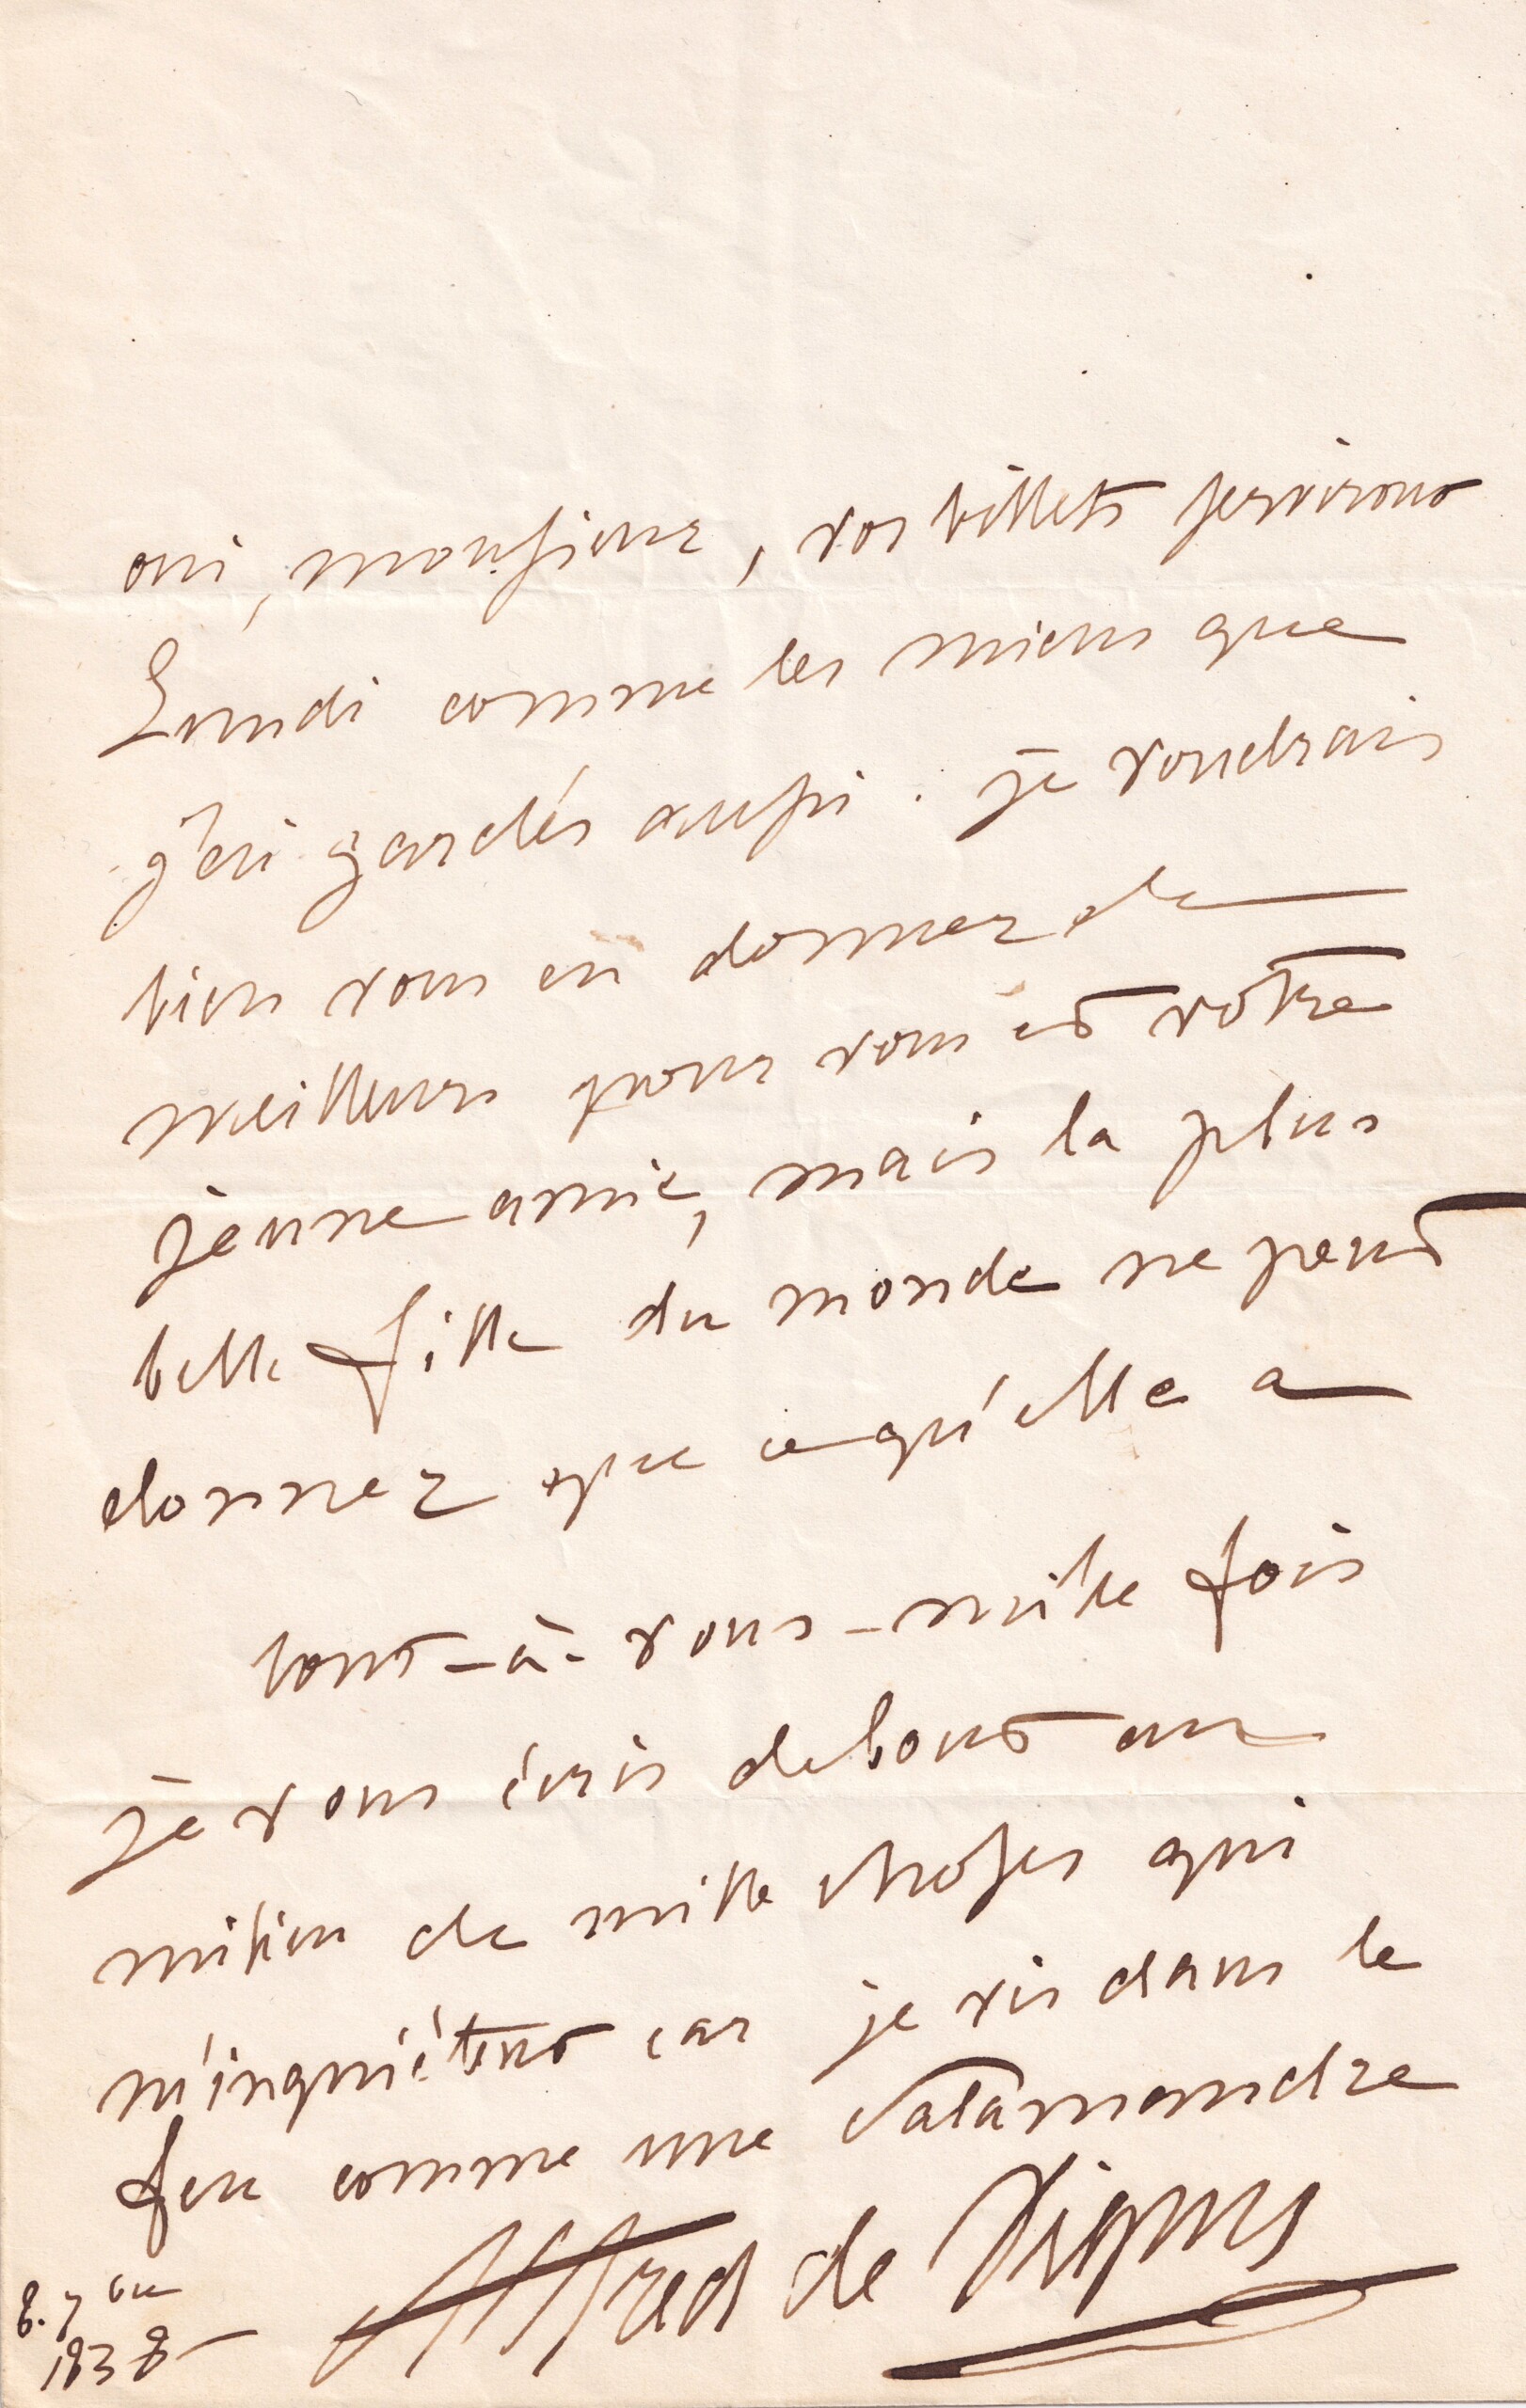 oui, monsieur, vos billets serviront
Lundi comme les miens que
j'ai gardés aussi. je voudrais
bien vous en donner de
meilleurs pour vous et votre
jeune amie, mais la plus
belle fille du monde ne peut
donner que ce qu'elle a
tout-à-vous-mille fois
je vous écris debout au
milieu de mille choses qui
m'inquiètent car je vis dans le
feu comme une salamandre
Alfred de Vigny
8. 7bre
1838